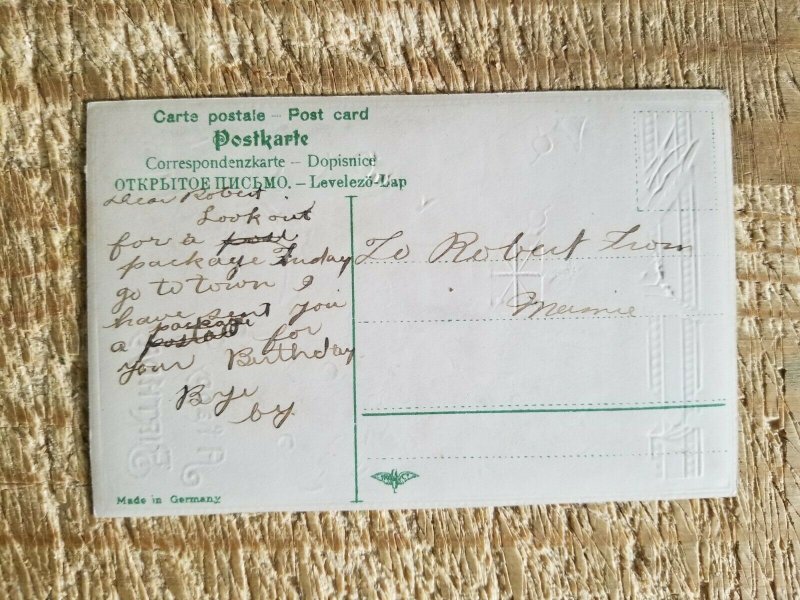 Carte postale – Post card
Postkarte
Correspondenzkarte – Dopisnice
ОТКРЫТОЕ ПИСЬМО. – Levelező-Lap
Dear Robert.
Look out
for a post
package Friday
go to town I
have sent you
package
a postal for
your Birthday
Bye
by
To Robert From
Mamie
Made in Germany